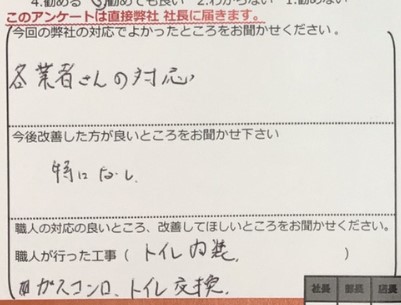 4.勧める 3.勧めても良い 2.わからない 1.勧めない
このアンケートは直接弊社 社長に届きます。
今回の弊社の対応でよかったところをお聞かせください。
各業者さんの対応
今後改善した方が良いところをお聞かせ下さい
特になし.
職人の対応の良いところ、改善してほしいところをお聞かせください。
職人が行った工事( トイレ内装, )
ガスコンロ、トイレ交換.
社長 部長 店長